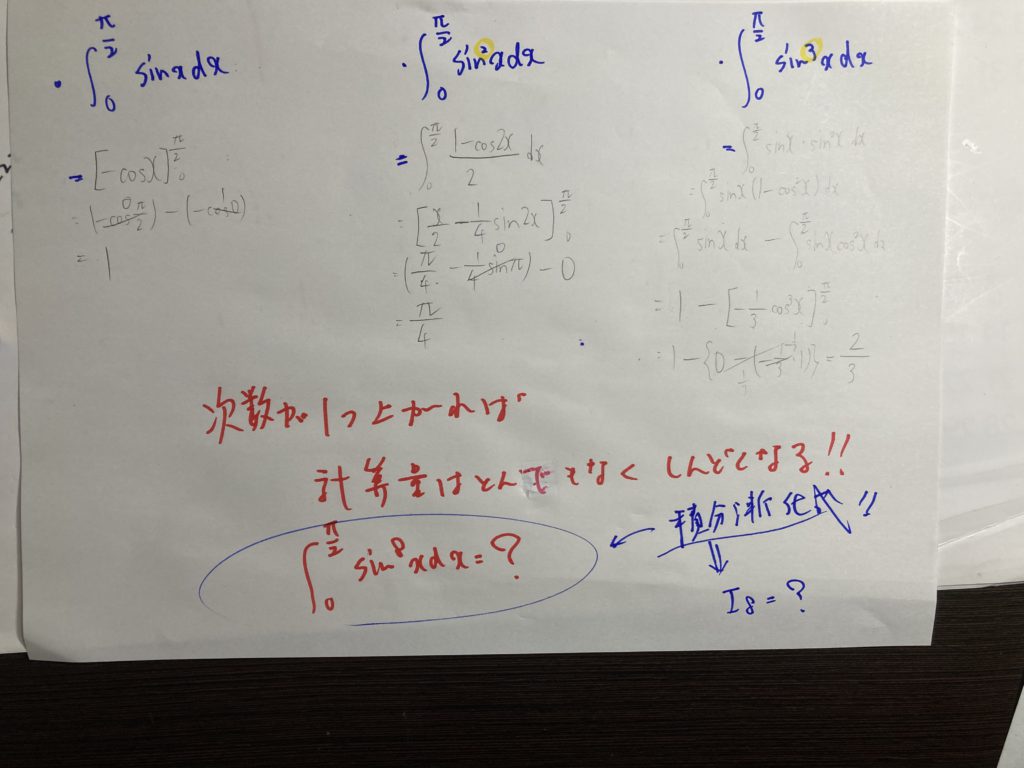 ・∫₀^{π/2} sinx dx
= [-cosx]₀^{π/2}
= (-cos π/2) - (-cos0)
= 1
・∫₀^{π/2} sin²x dx
= ∫₀^{π/2} (1-cos2x)/2 dx
= [x/2 - 1/4 sin2x]₀^{π/2}
= (π/4 - 1/4 sinπ) - 0
= π/4
・∫₀^{π/2} sin³x dx
= ∫₀^{π/2} sinx・sin²x dx
= ∫₀^{π/2} sinx(1-cos²x) dx
= ∫₀^{π/2} sinx dx - ∫₀^{π/2} sinx cos²x dx
= 1 - [-1/3 cos³x]₀^{π/2}
= 2/3
次数が1つ上がれば
計算量はとんでもなくしんどくなる!!
∫₀^{π/2} sin⁸x dx = ?
← 積分漸化式!!
⇓
I₈ = ?